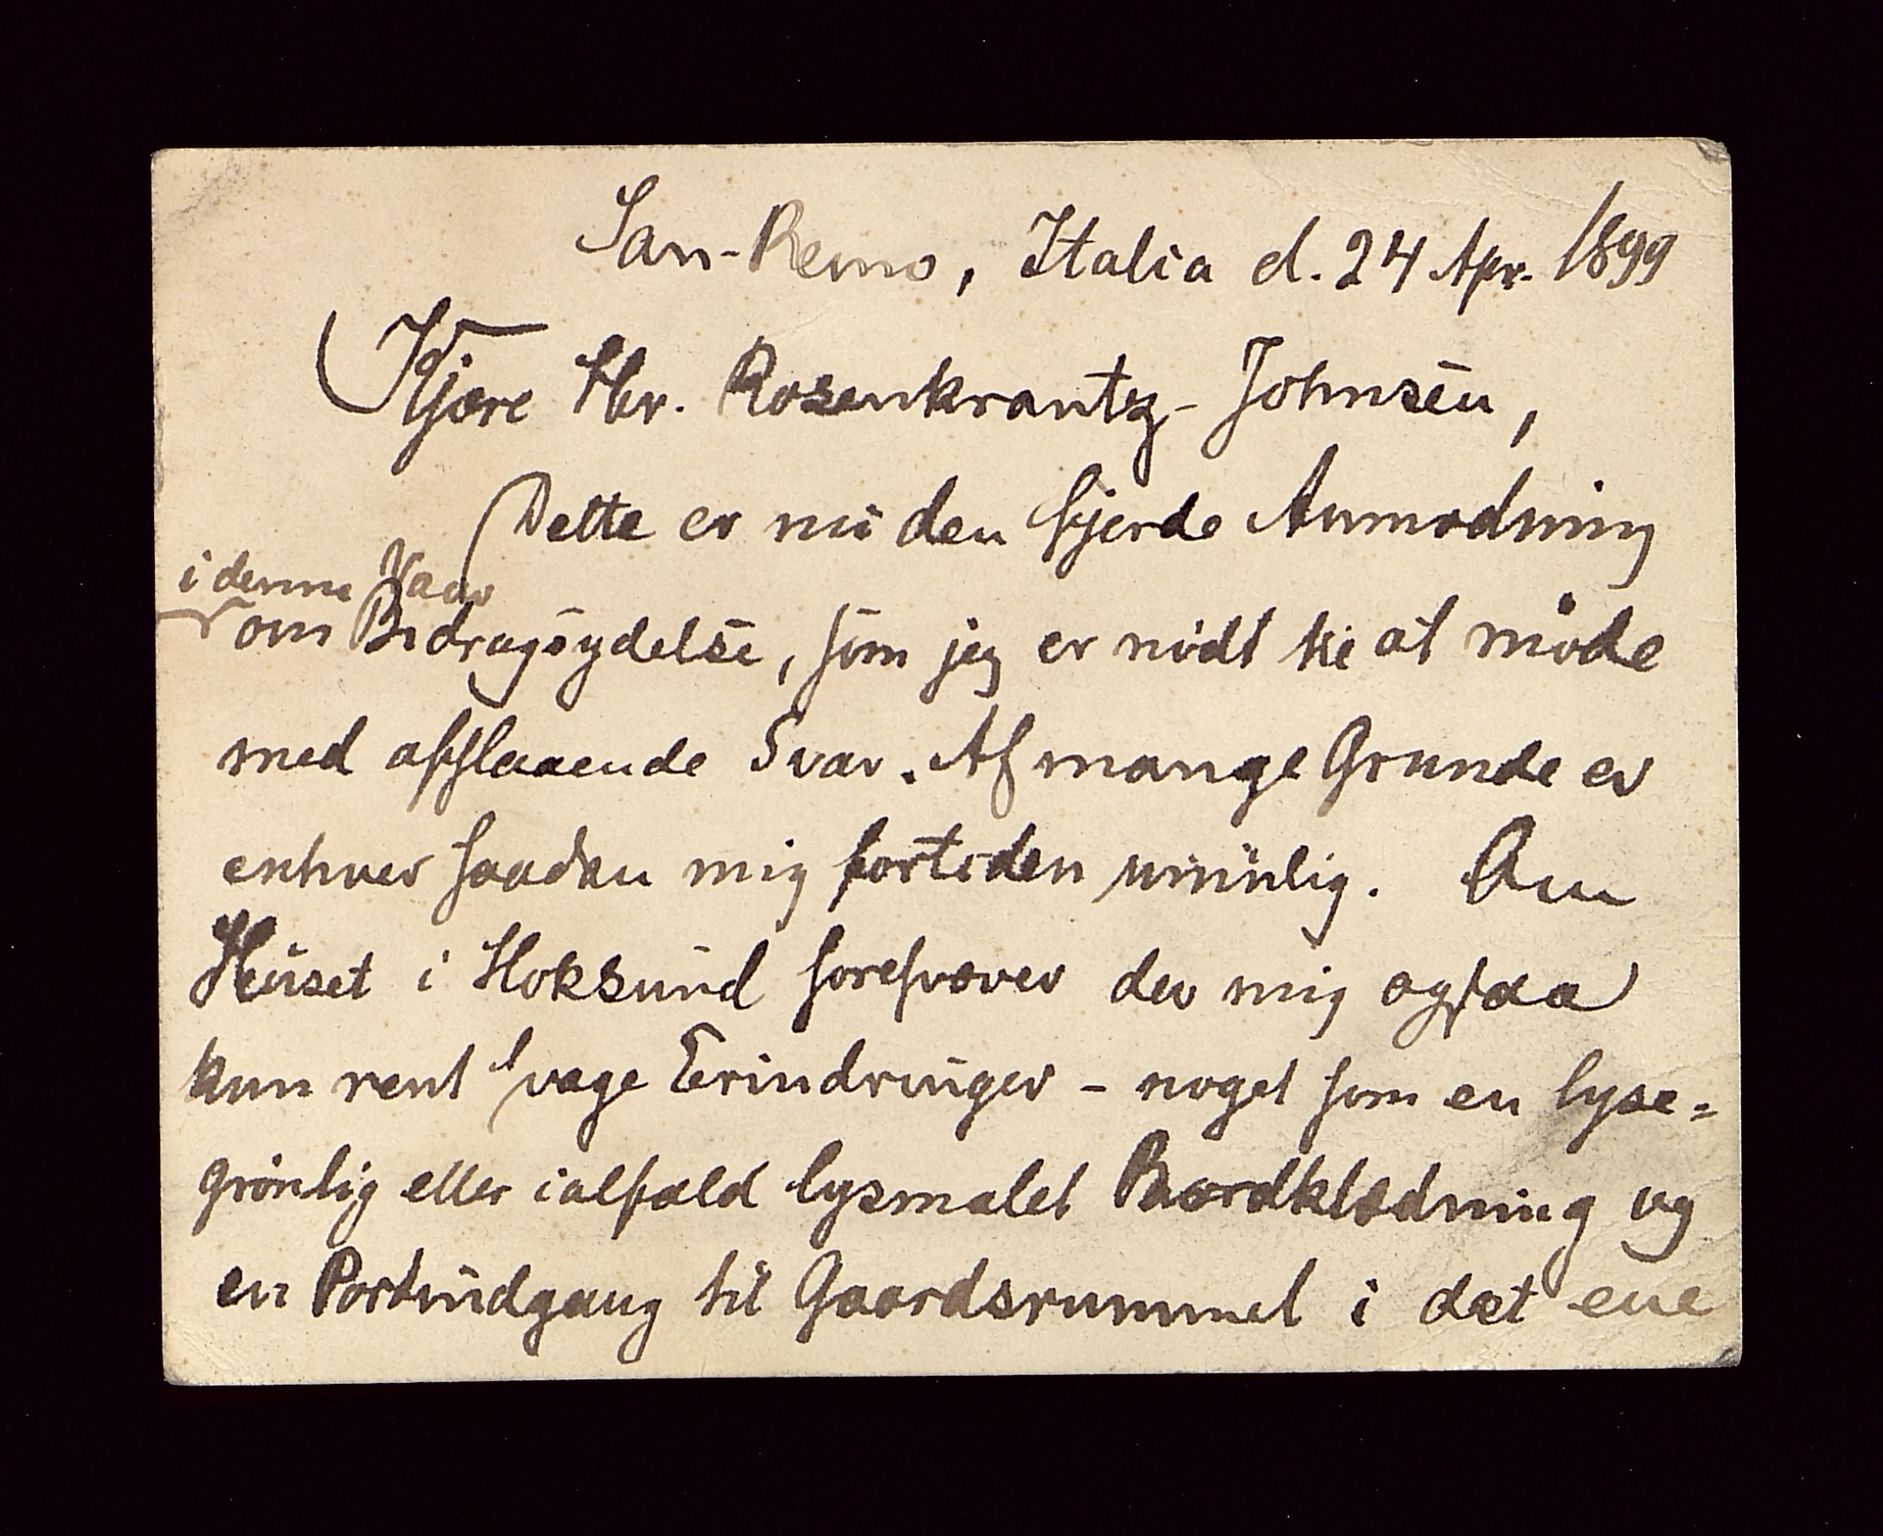 San-Remo, Italia d. 24 Apr. 1899
Kjære Hr. Rosenkrantz-Johnsen,
Dette er nu den fjerde Anmodning
i denne Vaar
om Bidragsydelse, som jeg er nödt til at möde
med afslaaende Svar. Af mange Grunde er
enhver saadan mig fortiden umulig. Om
Huset i Hoksund foresvæver der mig ogsaa
kun rent svage Erindringer – noget som en lyse-
grönlig eller ialfald lysmalet Bordklædning og
en Portindgang til Gaardsrummet i det ene